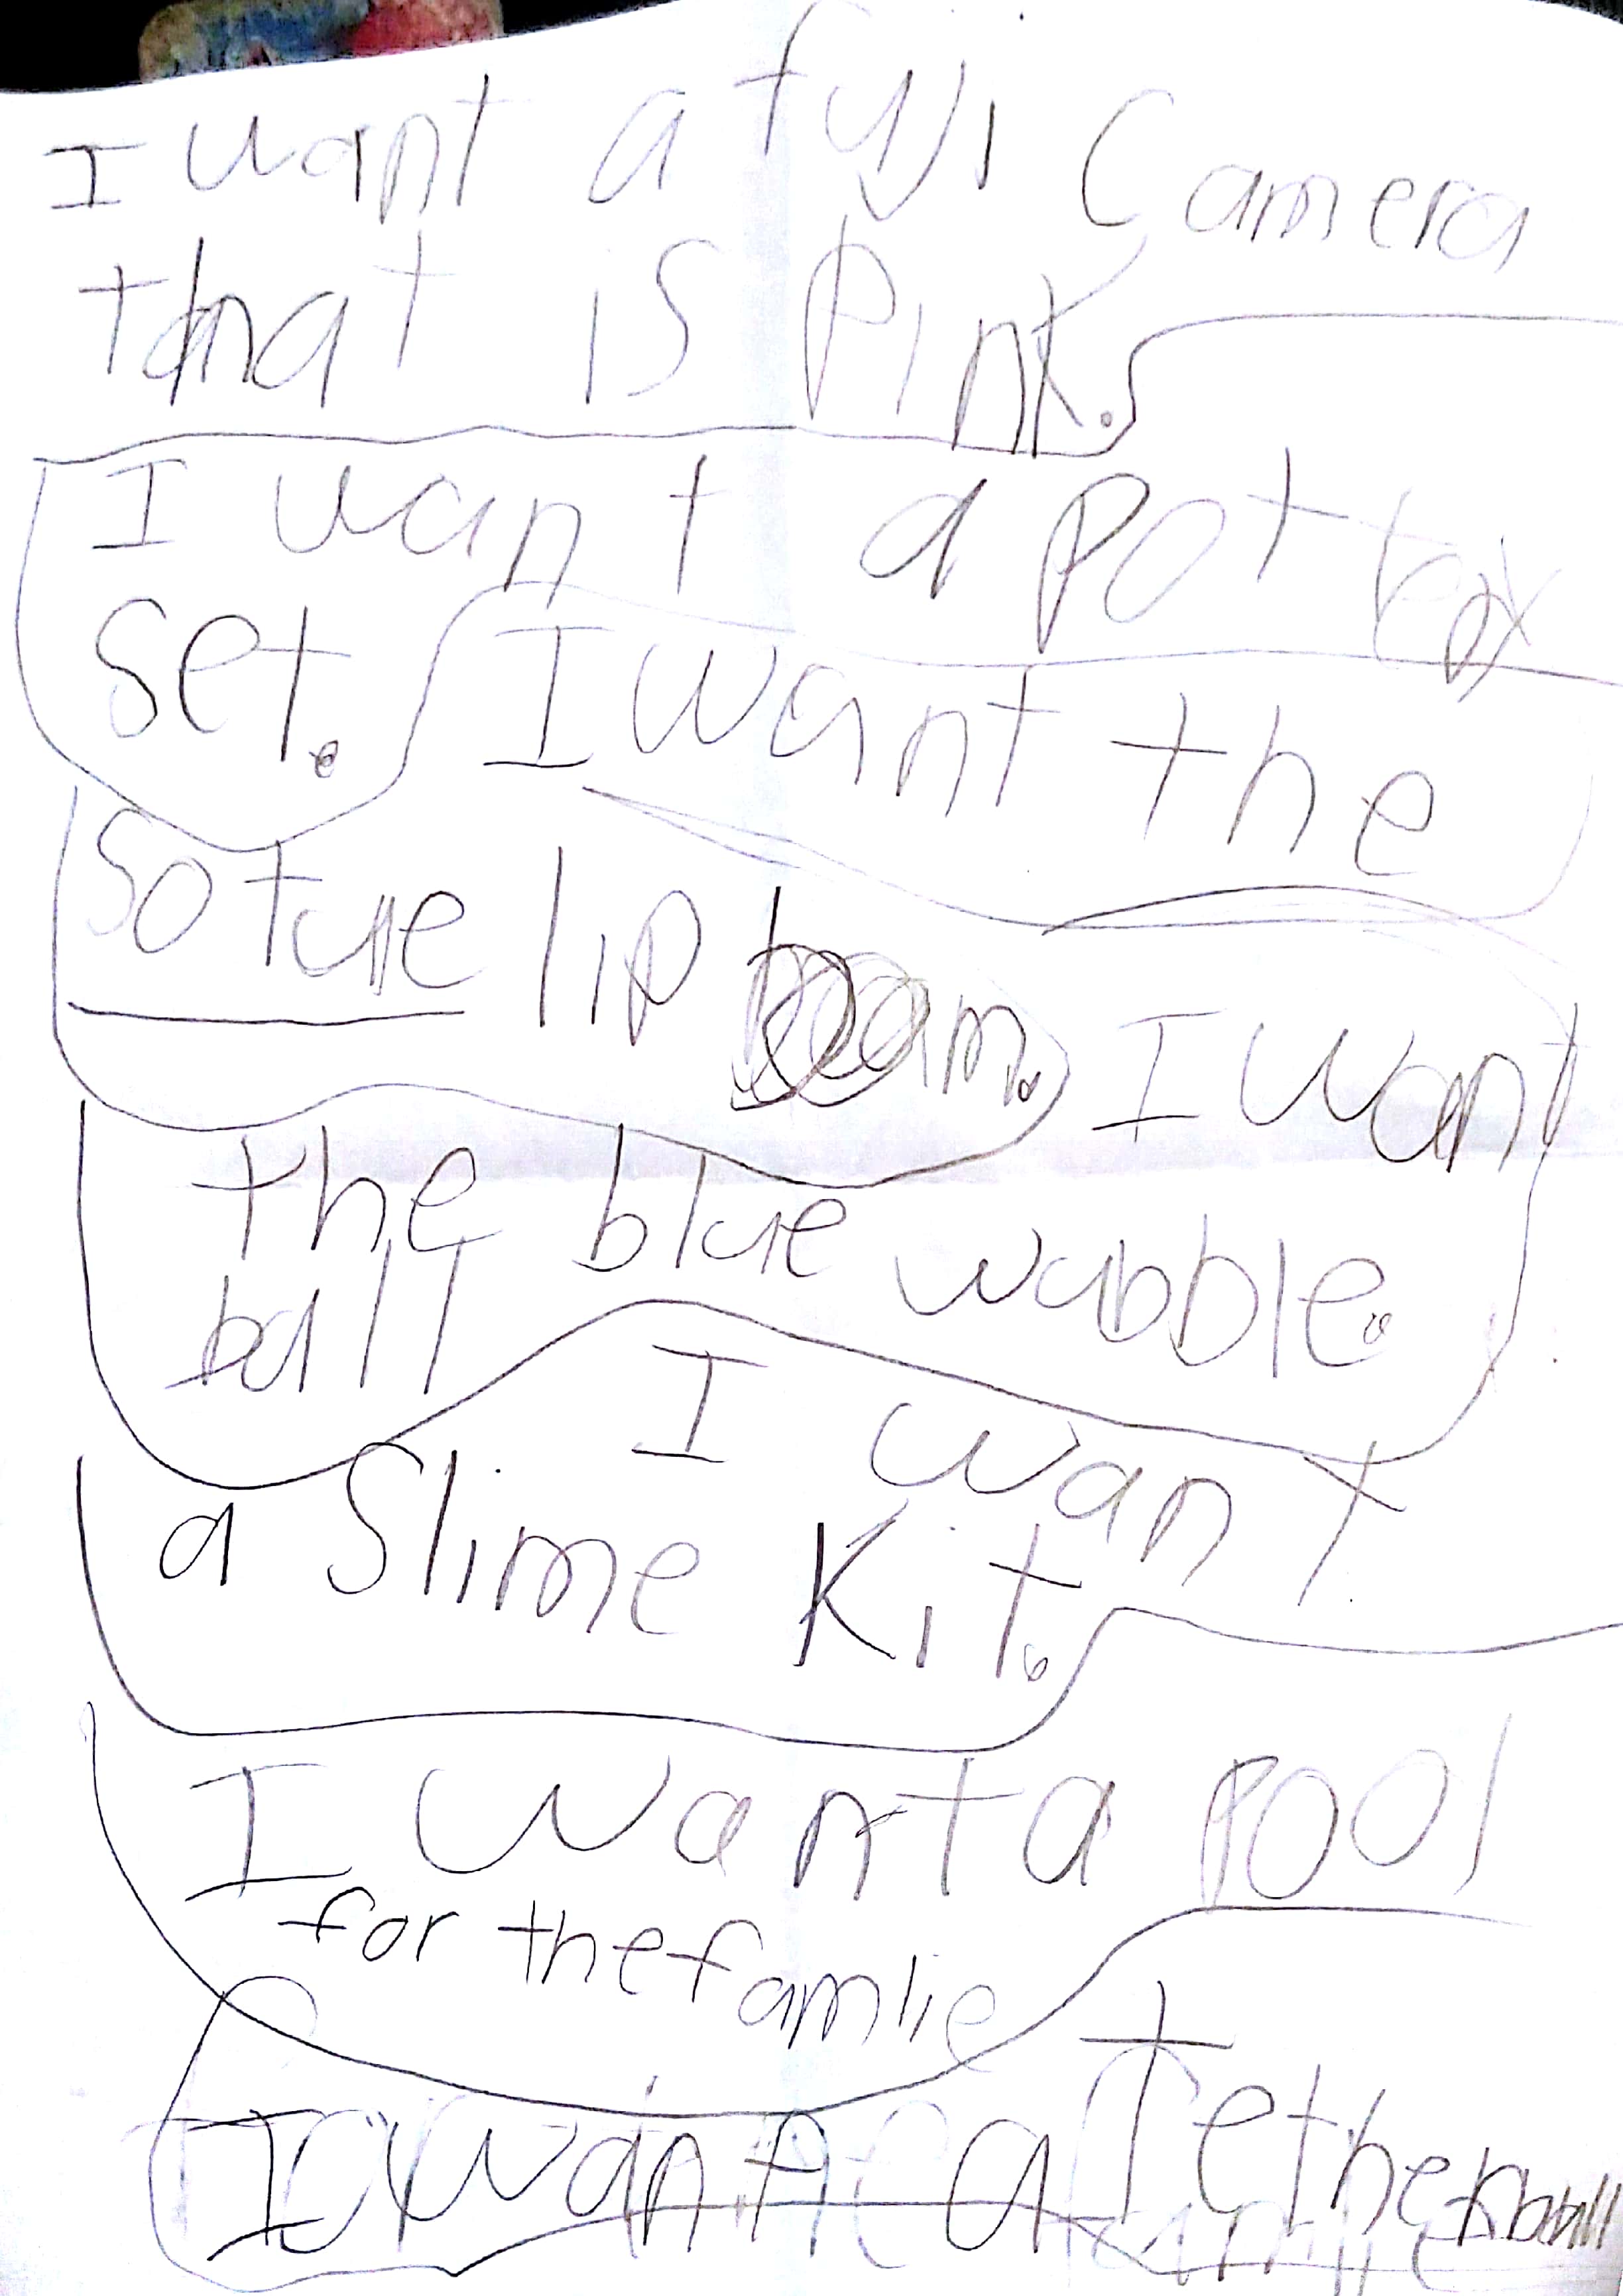 I want a fuji Camera
that is Pink.
I want a potter
set. I want the
Soture lip bam. I want
the blue wubble.
ball
I want
a Slime Kit.
I want a pool
for the famlie
I want a Tetherball